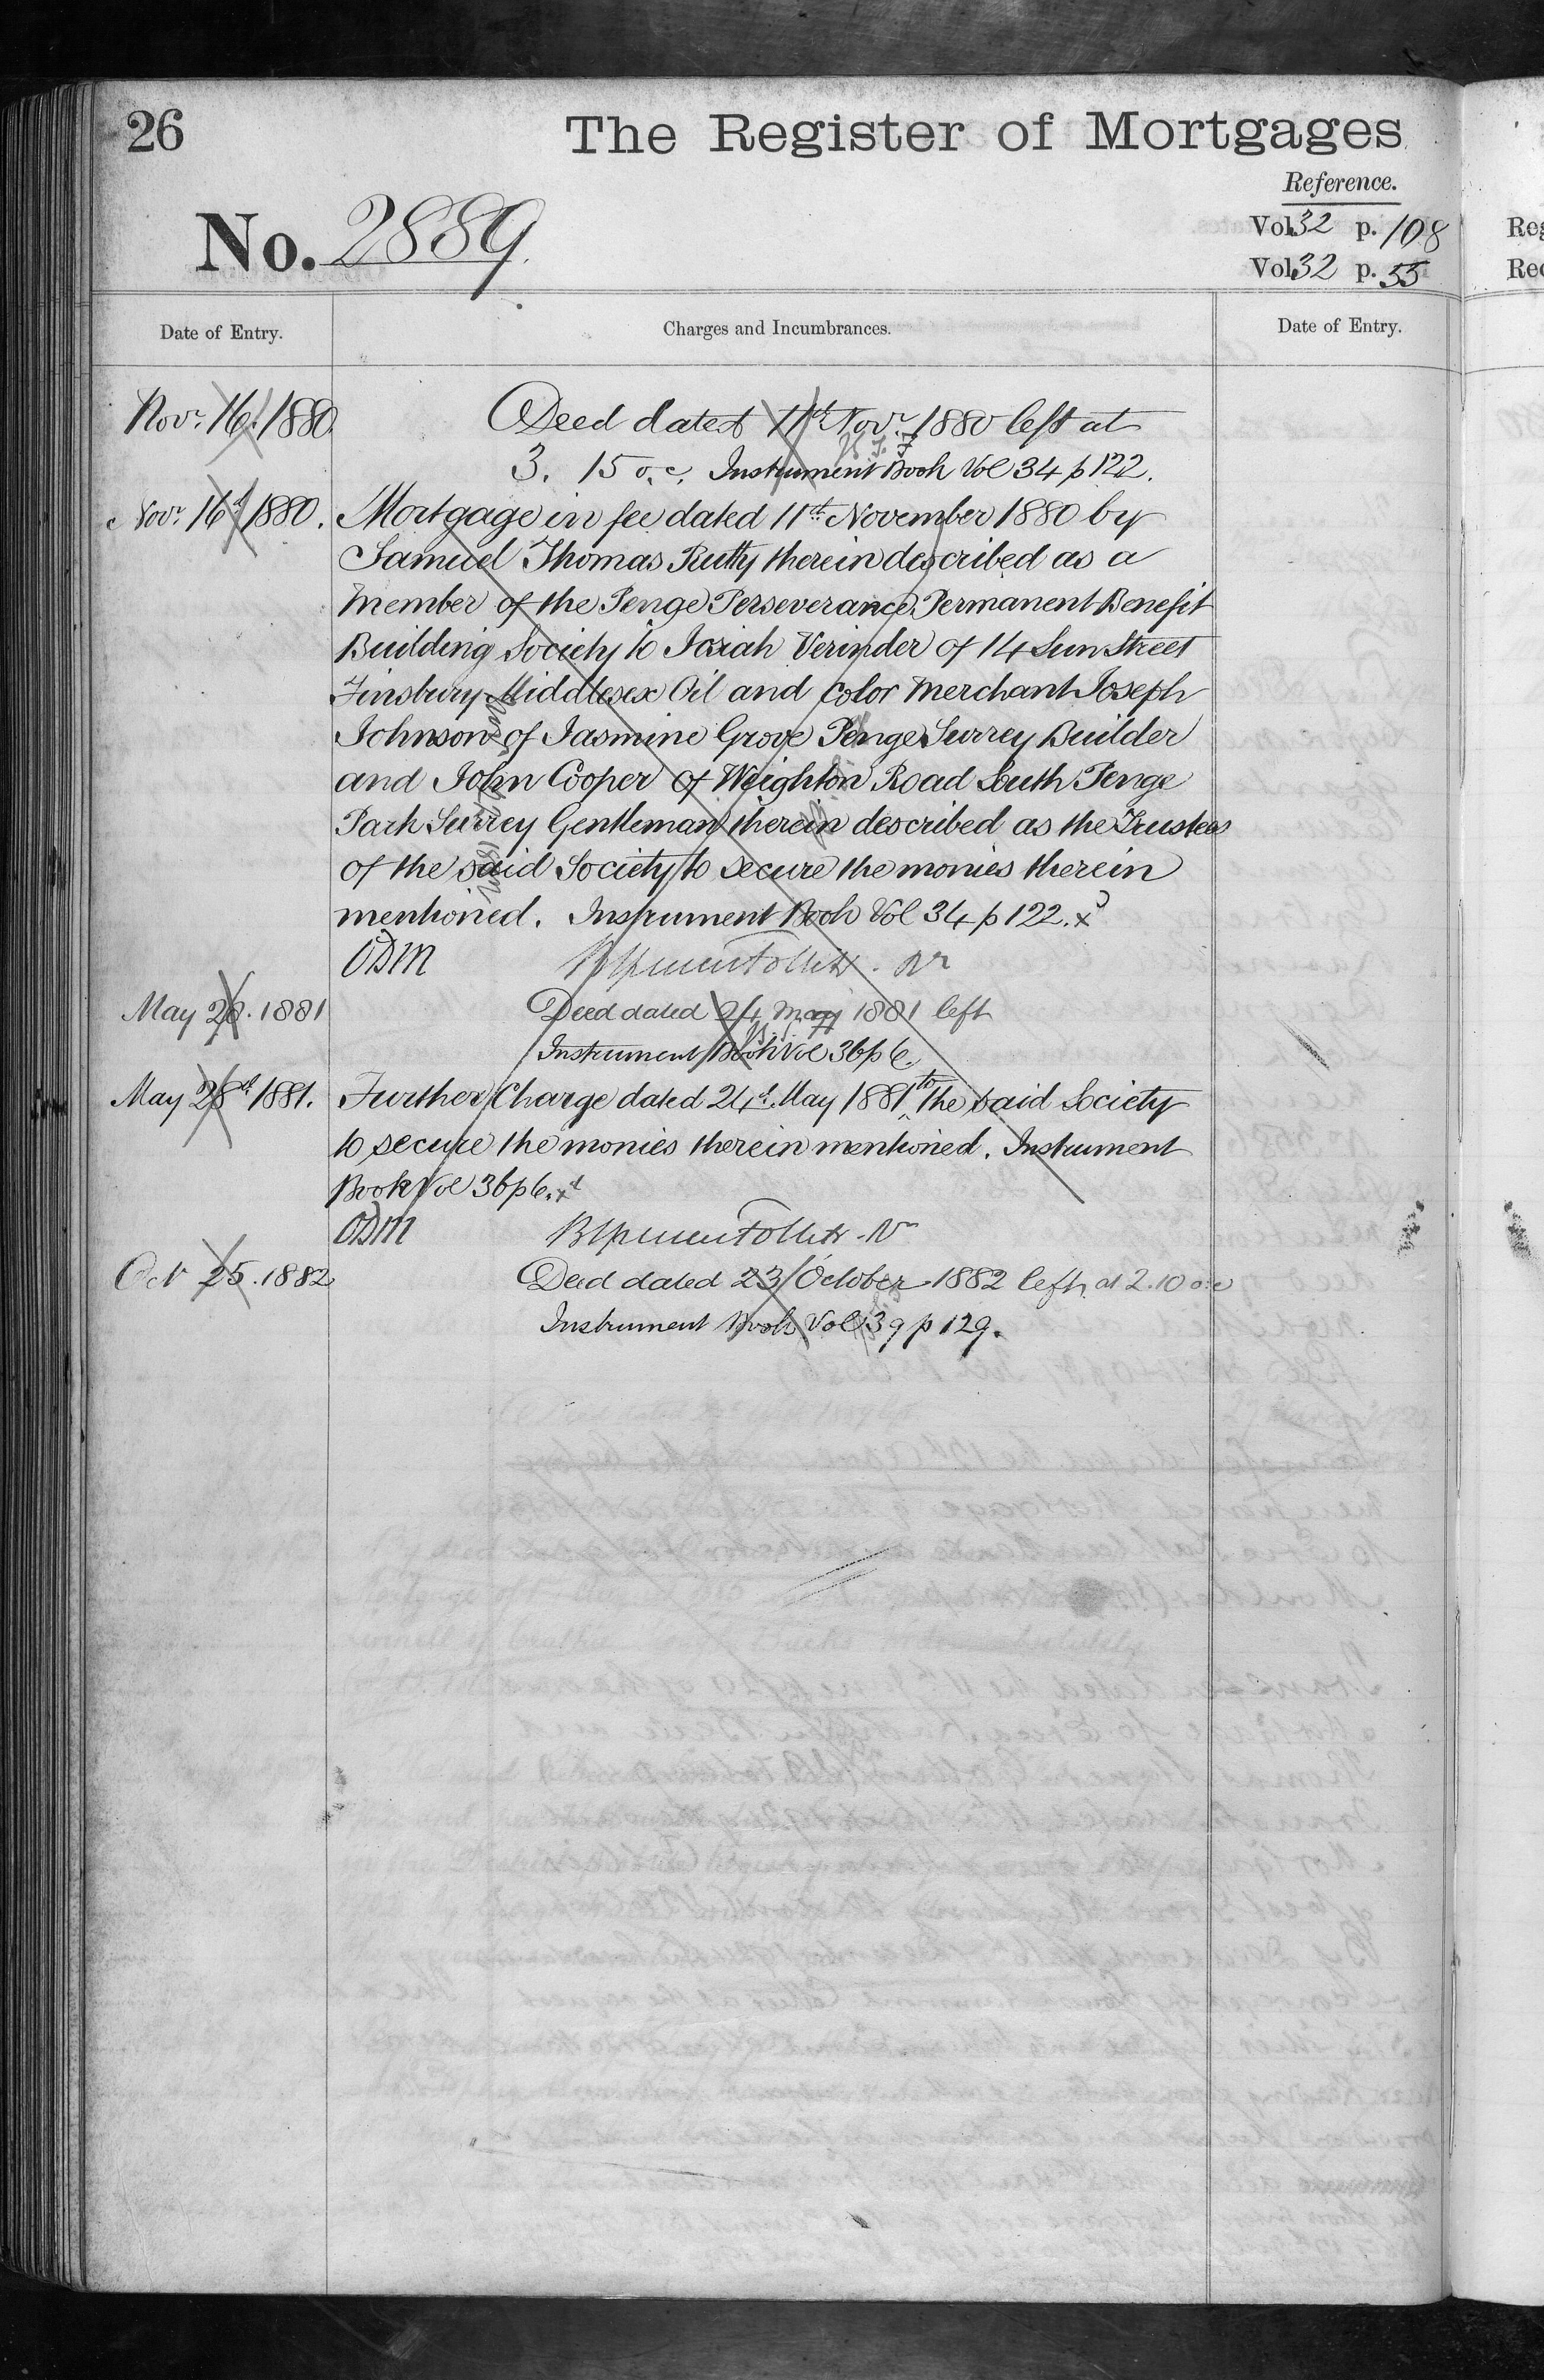 26
The Register of Mortgages
Reference.
No. 2889.
Vol. 32 p. 108
Vol. 32 p. 55
Reg
Rec
Date of Entry.
Charges and Incumbrances.
Date of Entry.
Novr. 16. 1880. Deed dated 11th Novr. 1880 left at
3. 15 o.c. Instrument Book Vol 34 p 122.
Novr. 16th 1880. Mortgage in fee dated 11th November 1880 by
Samuel Thomas Rutty therein described as a
Member of the Penge Perseverance Permanent Benefit
Building Society to Josiah Verinder of 14 Sun Street
Finsbury Middlesex Oil and Color Merchant Joseph
Johnson of Jasmine Grove Penge Surrey Builder
and John Cooper of Weighton Road South Penge
Park Surrey Gentleman therein described as the Trustees
of the said Society to secure the monies therein
mentioned. Instrument Book Vol 34 p 122.
ODM
May 28. 1881 Deed dated 24 May 1881 left
Instrument Book Vol 36 p 6.
May 28th 1881. Further Charge dated 24th May 1881 to the said Society
to secure the monies therein mentioned. Instrument
Book Vol 36 p 6.
ODM
Oct 25. 1882 Deed dated 23 October 1882 left at 2.10 o.c
Instrument Book Vol 39 p 129.